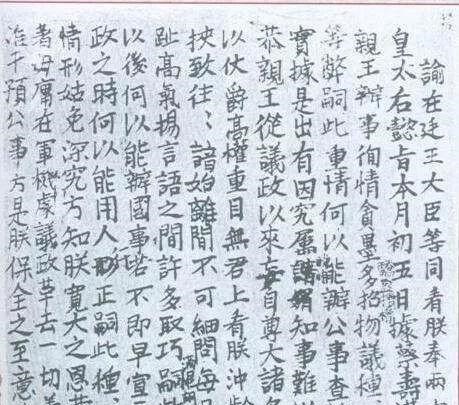 諭在廷王大臣等同看朕奉兩
皇太后懿旨本月初五日據蔡壽
親王辦事徇情貪墨多招物議種
等弊嗣此重情何以能辦公事查
實據是出有因究屬曖昧知事難
恭親王從議政以來妄自尊大諸
以仗爵高權重目無君上看朕沖齡
挾致往〻諳始離間不可細問每
趾高氣揚言語之間許多取巧嗣
以後何以能辦國事若不即早宣
政之時何以能用人行正嗣此種
情形姑免深究方知朕寬大之恩恭
著毋庸在軍機處議政革去一切差
准干預公事方是朕保全之至意